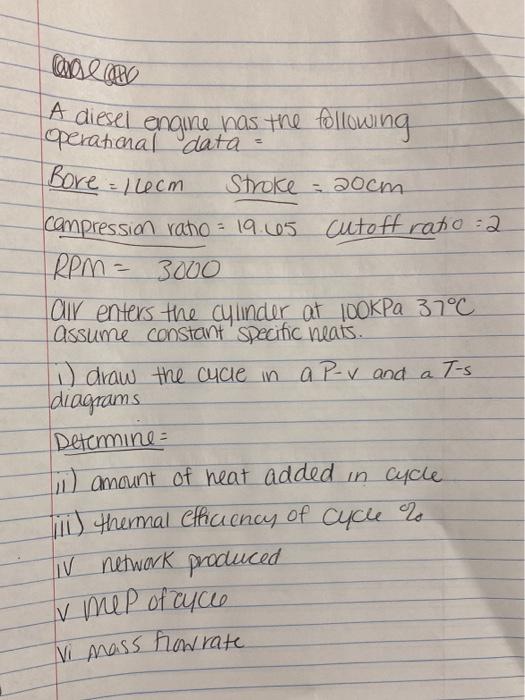 A diesel engine has the following
operational data =
Bore = 16cm Stroke = 20cm
compression ratio = 19.65 cutoff ratio = 2
RPM = 3000
air enters the cylinder at 100KPa 37°C
assume constant specific heats.
i) draw the cycle in a P-v and a T-s
diagrams
Determine =
ii) amount of heat added in cycle
iii) thermal efficiency of cycle %
iv network produced
v mep of cycle
vi mass flow rate